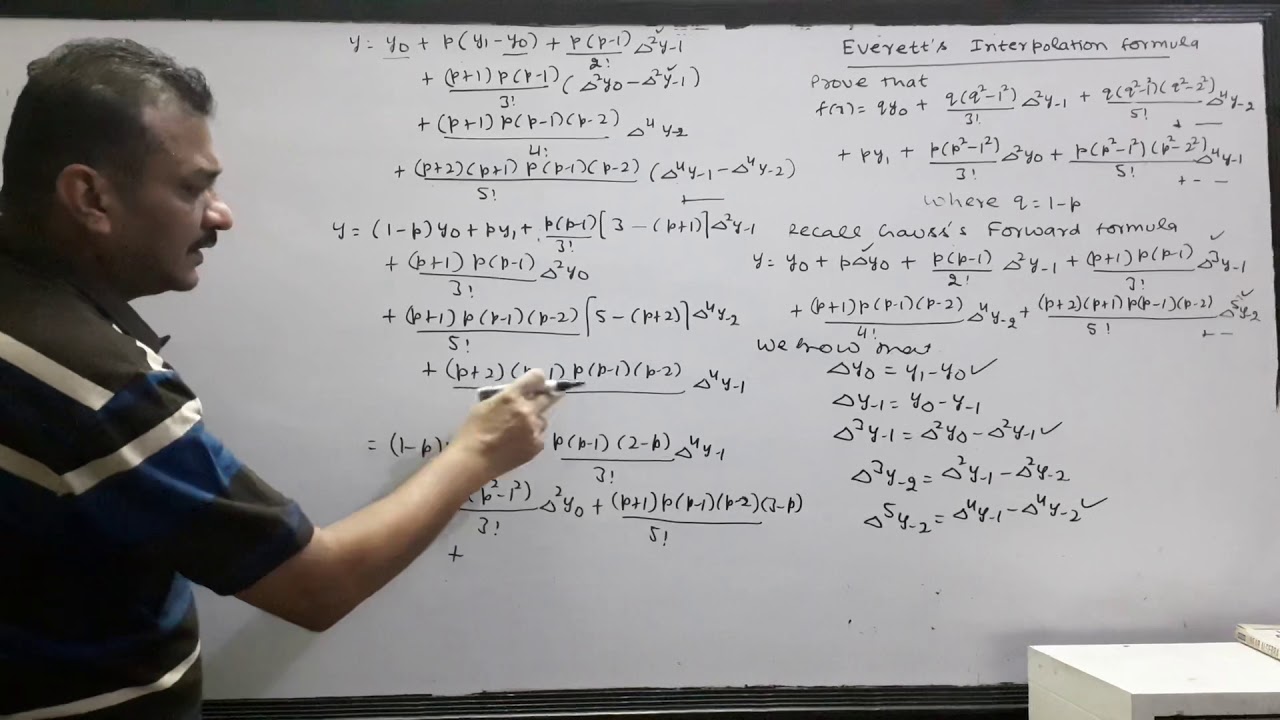 y = y₀ + p(y₁ – y₀) + p(p-1)/2! Δ²y₋₁
+ (p+1)p(p-1)/3! (Δ²y₀ – Δ²y₋₁)
+ (p+1)p(p-1)(p-2)/4! Δ⁴y₋₂
+ (p+2)(p+1)p(p-1)(p-2)/5! (Δ⁴y₋₁ – Δ⁴y₋₂)
y = (1-p)y₀ + py₁ + p(p-1)/3! [3 – (p+1)]Δ²y₋₁
+ (p+1)p(p-1)/3! Δ²y₀
+ (p+1)p(p-1)(p-2)/5! [5 – (p+2)]Δ⁴y₋₂
+ (p+2)(p-1)p(p-1)(p-2) Δ⁴y₋₁
= (1-p) p(p-1)(2-p)/3! Δ⁴y₋₁
(p²-1²)/3! Δ²y₀ + (p+1)p(p-1)(p-2)(3-p)/5!
+
Everett's Interpolation formula
Prove that
f(x) = qy₀ + q(q²-1²)/3! Δ²y₋₁ + q(q²-1²)(q²-2²)/5! Δ⁴y₋₂
+ --
+ py₁ + p(p²-1²)/3! Δ²y₀ + p(p²-1²)(p²-2²)/5! Δ⁴y₋₁
+ - -
where q = 1-p
Recall Gauss's Forward formula
y = y₀ + pΔy₀ + p(p-1)/2! Δ²y₋₁ + (p+1)p(p-1)/3! Δ³y₋₁
+ (p+1)p(p-1)(p-2)/4! Δ⁴y₋₂ + (p+2)(p+1)p(p-1)(p-2)/5! Δ⁵y₋₂
+ --
we know that
Δy₀ = y₁ – y₀ ✓
Δy₋₁ = y₀ – y₋₁
Δ³y₋₁ = Δ²y₀ – Δ²y₋₁ ✓
Δ³y₋₂ = Δ²y₋₁ – Δ²y₋₂
Δ⁵y₋₂ = Δ⁴y₋₁ – Δ⁴y₋₂ ✓
LINEAR ALGEBRA